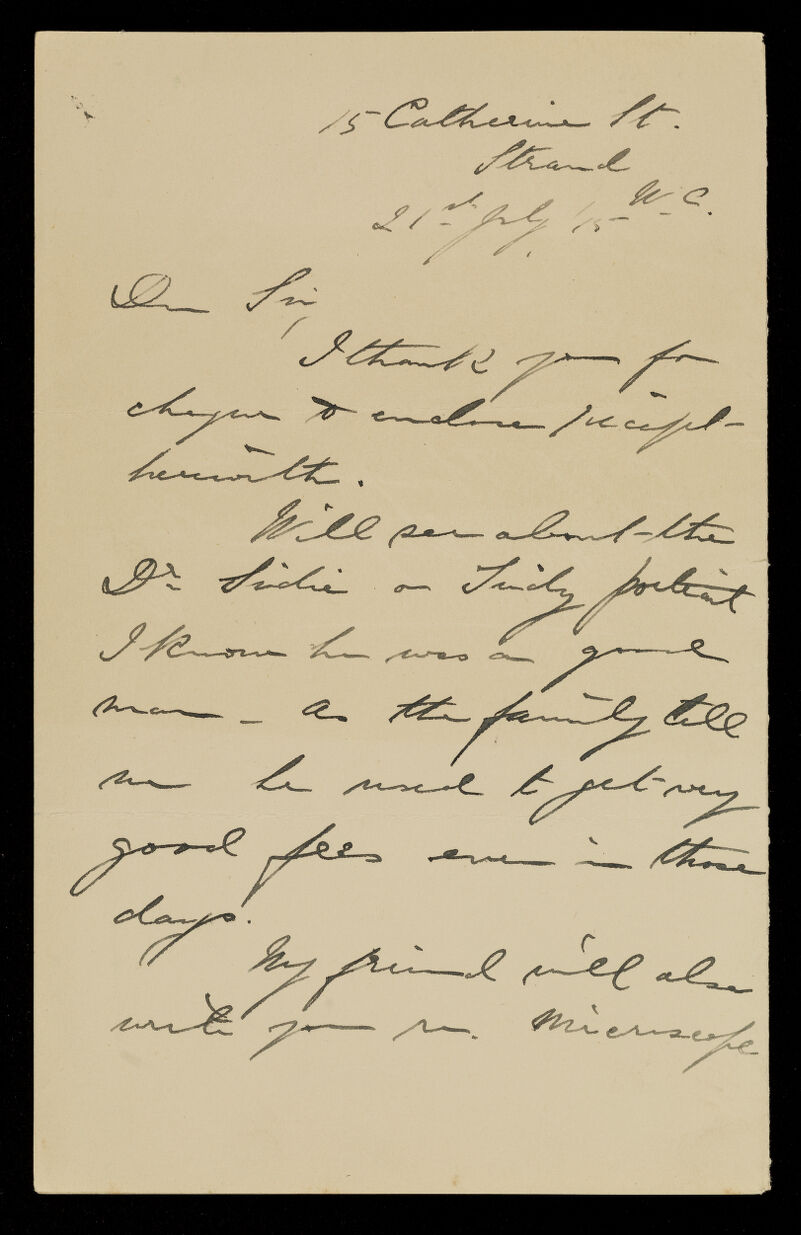 15 Catherine St.
Strand
W.C.
21st July '15
Dear Sir,
I thank you for
cheque & enclose receipt
herewith.
Will see about the
Dr. or portrait
I know he was a good
man - as the family tell
me he used to get very
good fees even in those
days.
My friend will also
write you re. Microscope